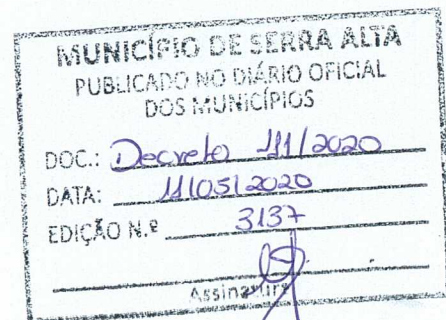 MUNICÍPIO DE SERRA ALTA
PUBLICADO NO DIÁRIO OFICIAL
DOS MUNICÍPIOS
DOC.: Decreto 111/2020
DATA: 11/05/2020
EDIÇÃO N.º 3137
Assinatura